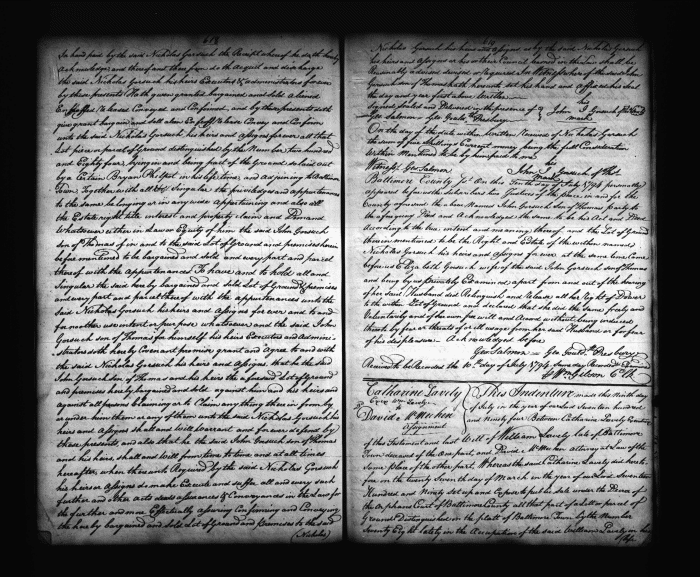 613
In hand paid by the said Nicholas Gorsuch the Receipt whereof he doth hereby
Acknowledge and thereof and therefrom doth Acquit and discharge
the said Nicholas Gorsuch his heirs Executors & administrators forever
by these presents Hath given granted bargained and sold aliened
Enfeoffed Released Conveyed and Confirmed and by these presents doth
give grant bargain and sell alien Enfeoff Release Convey and Confirm
unto the said Nicholas Gorsuch his heirs and assigns forever all that
Lot piece or parcel of ground distinguished by the Number two hundred
and Eighty four lying in and being part of the Ground so laid out
by a Certain Bryan Philpot in his lifetime and adjoining Baltimore
Town Together with all & Singular the priviledges and appurtenances
to the same belonging or in any wise Appertaining and also all
the Estate right title interest and property claim and Demand
Whatsoever either in Law or Equity of him the said John Gorsuch
son of Thomas of in and to the said Lot of Ground and premises herein
before mentioned to be bargained and sold and every part and parcel
thereof with the Appurtenances To have and to hold all and
Singular the said hereby bargained and sold Lot of Ground & premises
and every part and parcel thereof with the appurtenances unto the
said Nicholas Gorsuch his heirs and Assigns for ever and to and
for no other use intent or purpose whatsoever and the said John
Gorsuch son of Thomas for himself his heirs Executors and Admini-
strators doth hereby Covenant promise grant and agree to and with
the said Nicholas Gorsuch his heirs and Assigns that he the said
John Gorsuch son of Thomas and his heirs the aforesaid Lot of ground
and premises hereby bargained and sold against him and his heirs and
against all persons Claiming or to Claim any thing therein from by
or under him them or any of them unto the said Nicholas Gorsuch his
heirs and Assigns shall and will warrant and forever defend by
these presents, and also that he the said John Gorsuch son of Thomas
and his heirs shall and will from time to time and at all times
hereafter when thereunto Required by the said Nicholas Gorsuch
his heirs or Assigns do make Execute and suffer all and every such
further and other acts deeds assurances & Conveyances in the Law for
the further and more Effectually assuring Confirming and Conveying
the hereby bargained and sold Lot of Ground and Premises to the said
(Nicholas)
Nicholas Gorsuch his heirs and Assigns as by the said Nicholas Gorsuch
his heirs and Assigns or his or their Council learned in the Law shall be
Reasonably advised devised or Required In Witness whereof the said John
Gorsuch son of Thomas hath hereunto set his hand and affixed his Seal
the day and year first above Written
Signed Sealed and Delivered in the presence of
Geo Salmon Geo Gould Presbury
his
John I Gorsuch of Thos (seal)
mark
On the day of the date within Written Received of Nicholas Gorsuch
the sum of five Shillings Current money being the full Consideration
within Mentioned to be by him paid to me
his
Witness Geo Salmon
John I Gorsuch of Thos
mark
Baltimore County Sct On this Tenth day of July 1794 personally
appears before us the Subscribers two Justices of the peace in and for the
County aforesaid the above Named John Gorsuch son of Thomas Party to
the aforegoing Deed and Acknowledged the same to be his Act and Deed
According to the true intent and meaning thereof and the Lot of Ground
therein mentioned to be the Right and Estate of the within named
Nicholas Gorsuch his heirs and Assigns for ever at the same time Came
before us Elizabeth Gorsuch wife of the said John Gorsuch son of Thomas
and being by us Privately Examined apart from and out of the hearing
of her said Husband did Relinquish and Release all her Right of Dower
to the within Lot of Ground and declared that she did the same freely and
Voluntarily and of her own free will and Accord without being induced
thereto by fear or threats of or ill usage from her said Husband or for fear
of his displeasure Acknowledged before
Geo Salmon Geo Gould Presbury
Received to be Recorded the 10th day of July 1794 same day Recorded & Examined
Wm Gibson Clk
Catharine Lavely
to
David McMechen
Assignment
This Indenture made this Ninth day
of July in the year of our Lord Seventeen hundred
and ninety four Between Catharine Lavely Executrix
of the Testament and last Will of William Lavely late of Baltimore
Town deceased of the One part, and David McMechen Attorney at Law of the
same place of the other part, Whereas the said Catharine Lavely did hereto
fore on the Twenty Seventh day of March in the year of our Lord Seventeen
Hundred and Ninety set up and Expose to public sale under the Decree of
the Orphans Court of Baltimore County all that part of a Lot or parcel of
Ground Distinguished on the platt of Baltimore Town by the Number
Seventy Eight lately in the Occupation of the said William Lavely in his